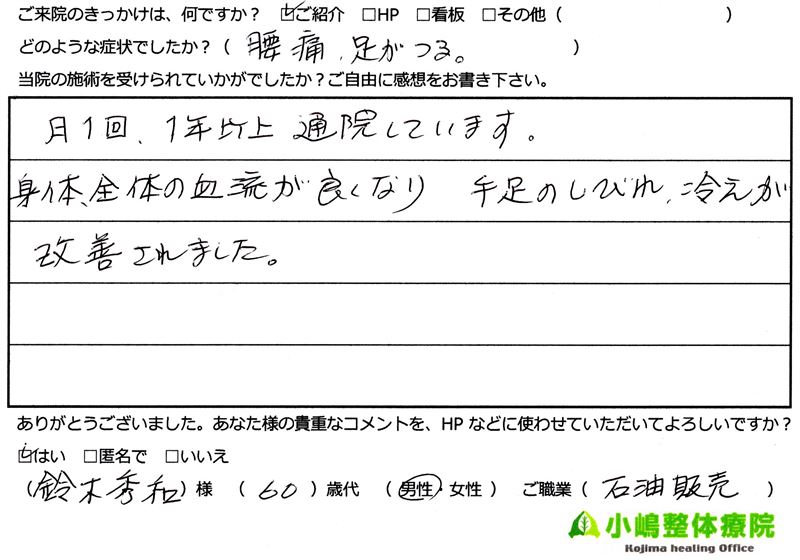 ご来院のきっかけは、何ですか? ☑ご紹介 □HP □看板 □その他 ( )
どのような症状でしたか? ( 腰痛、足がつる。 )
当院の施術を受けられていかがでしたか?ご自由に感想をお書き下さい。
月1回、1年以上通院しています。
身体、全体の血流が良くなり 手足のしびれ、冷えが
改善されました。
ありがとうございました。あなた様の貴重なコメントを、HPなどに使わせていただいてよろしいですか?
☑はい □匿名で □いいえ
(鈴木秀和)様 ( 60 )歳代 ( 男性・女性 ) ご職業( 石油販売 )
小嶋整体療院
Kojima healing Office